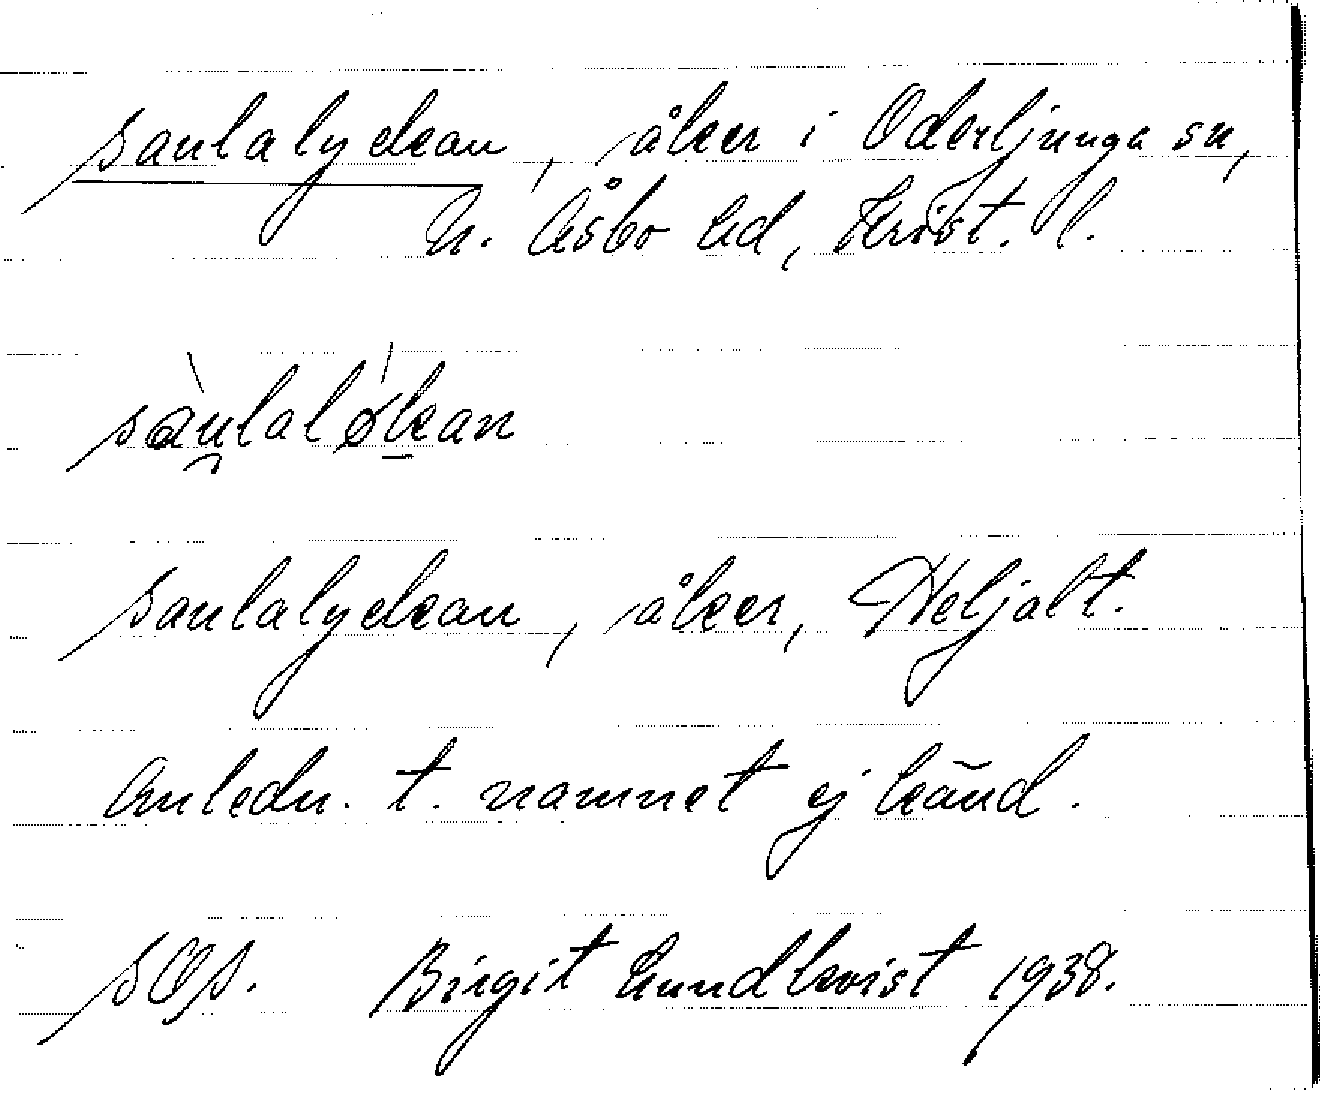 saulalyckan, åker i Oderljunga sn,
N. Åsbo hd, Krist. l.
sàu̯laló̱kan
saulalyckan, åker, Heljalt.
Anledn. t. namnet ej känd.
sOs. Birgit Lundkvist 1938.